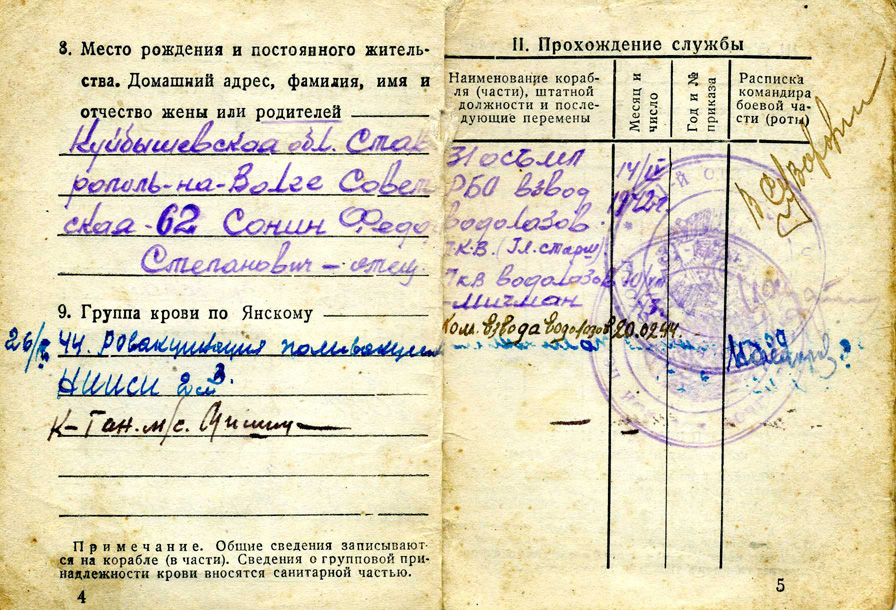 8. Место рождения и постоянного житель-
ства. Домашний адрес, фамилия, имя и
отчество жены или родителей
Куйбышевская обл. Став
рополь-на-Волге Совет
ская-62 Сонин Федо
Степанович - отец.
9. Группа крови по Янскому
26/ 44. Ровакцинация поливакцин
НИИСИ 2 см³.
К-Тан. м/с.
Примечание. Общие сведения записывают-
ся на корабле (в части). Сведения о групповой при-
надлежности крови вносятся санитарной частью.
4
II. Прохождение службы
Наименование кораб-
ля (части), штатной
должности и после-
дующие перемены
Месяц и
число
Год и №
приказа
Расписка
командира
боевой ча-
сти (роты)
31 осъмп 14/IV
РБО взвод 1942 г.
водолазов.
К.В. (Гл. старш)
Пкв водолазов
-мичман
Ком. взвода водолазов 20.02.44
5